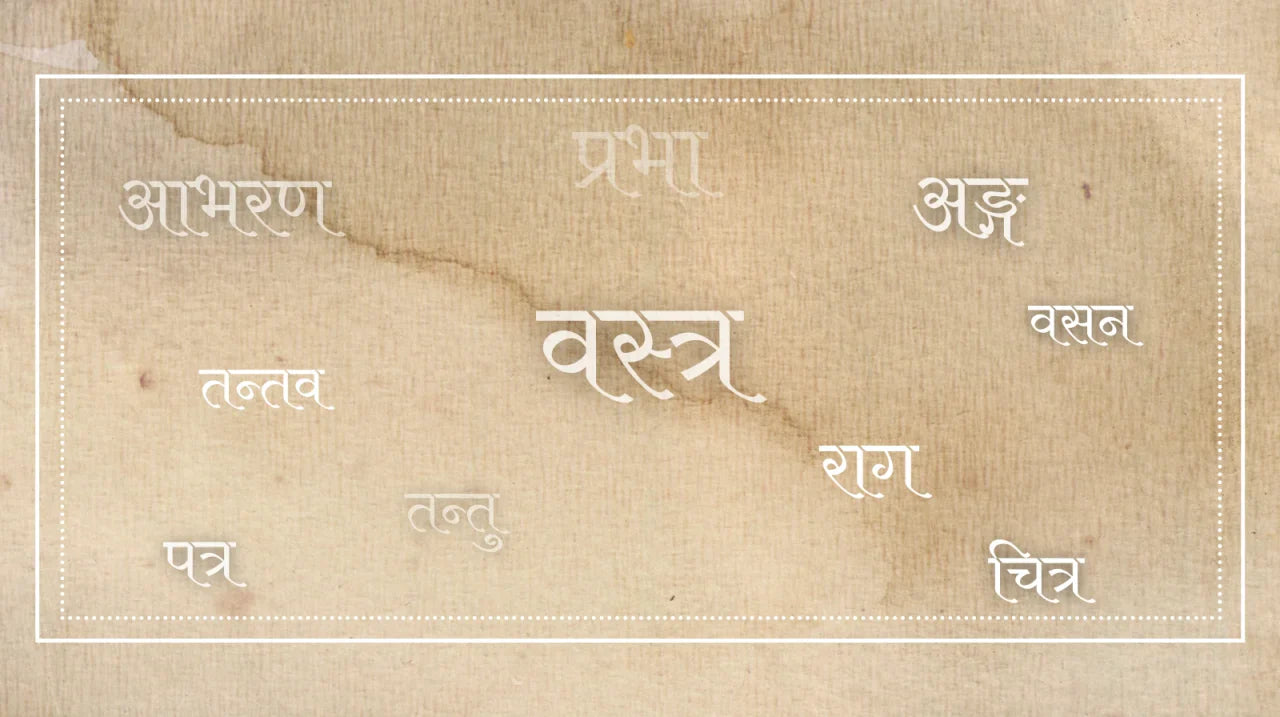 प्रभा
आभरण
अङ्ग
वसन
वस्त्र
तन्तव
राग
तन्तु
पत्र
चित्र